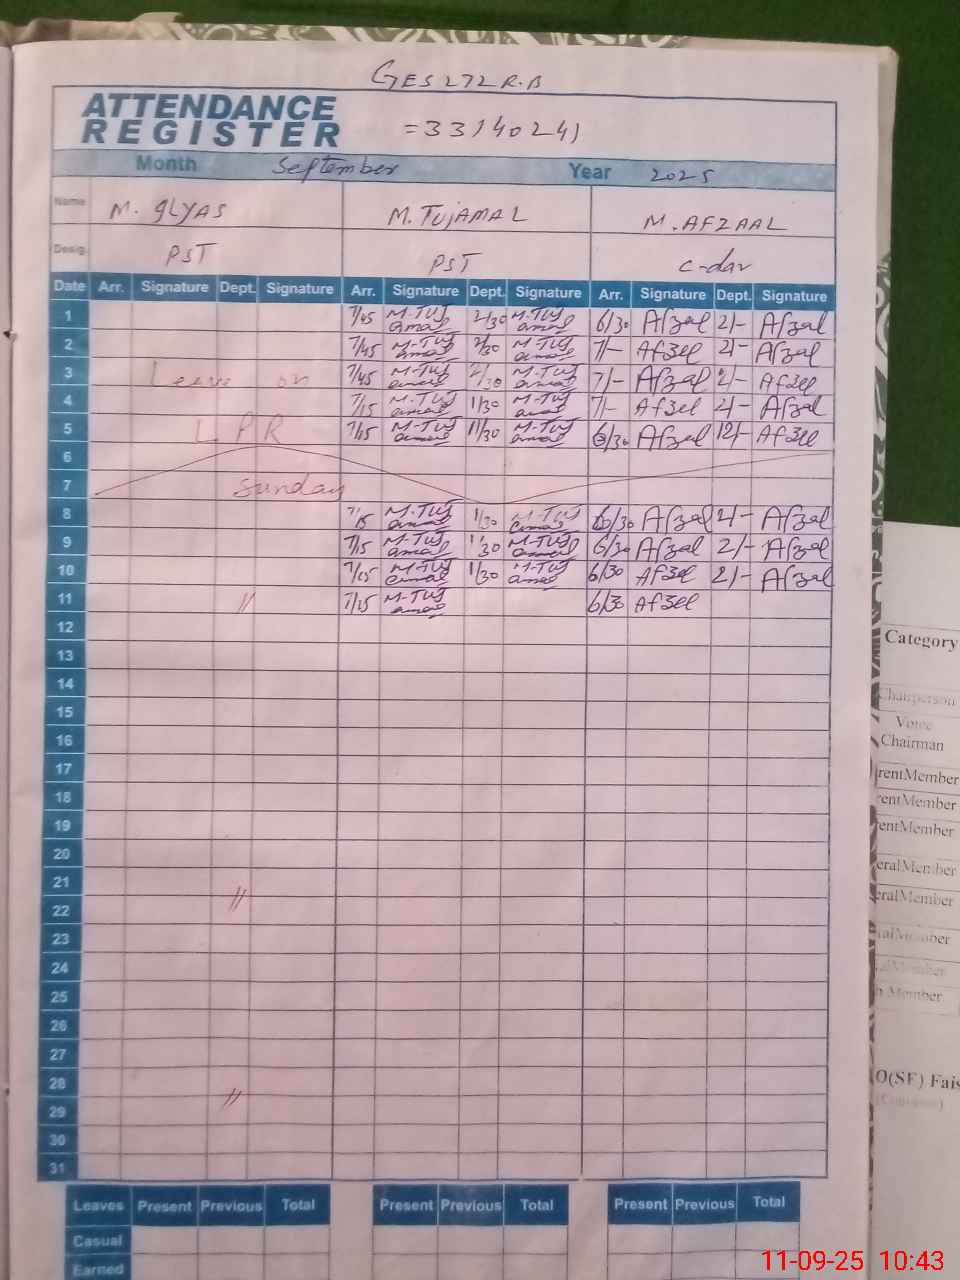 GES 272 R.B
ATTENDANCE
REGISTER
= 33140241
Month September Year 2025
Name M. ILYAS M. TUJAMAL M. AFZAAL
Desig. PST PST C-dar
Date Arr. Signature Dept. Signature Arr. Signature Dept. Signature Arr. Signature Dept. Signature
1 7/45 M-TUJ amal 2/30 M-TUJ amal 6/30 Afzal 2/- Afzal
2 7/45 M-TUJ amal 2/30 M-TUJ amal 7/- Afzel 2/- Afzal
3 Leave on 7/45 M-TUJ amal 2/30 M-TUJ amal 7/- Afzal 2/- Afzel
4 7/15 M-TUJ amal 1/30 M-TUJ amal 7/- Afzel 2/- Afzal
5 LPR 7/15 M-TUJ amal 11/30 M-TUJ amal 6/30 Afzal 12/- Afzel
6
7 Sunday
8 7/15 M-TUJ amal 1/30 M-TUJ amal 6/30 Afzal 2/- Afzal
9 7/15 M-TUJ amal 1/30 M-TUJ amal 6/30 Afzal 2/- Afzal
10 7/15 M-TUJ amal 1/30 M-TUJ amal 6/30 Afzel 2/- Afzal
11 // 7/15 M-TUJ amal 6/30 Afzel
12
13
14
15
16
17
18
19
20
21
22 //
23
24
25
26
27
28
29 //
30
31
Leaves Present Previous Total Present Previous Total Present Previous Total
Casual
Earned
Category
Chairperson
Chairman
rentMember
rentMember
entMember
eralMember
eralMember
ralMember
alMember
Member
O(SF) Fais
11-09-25 10:43